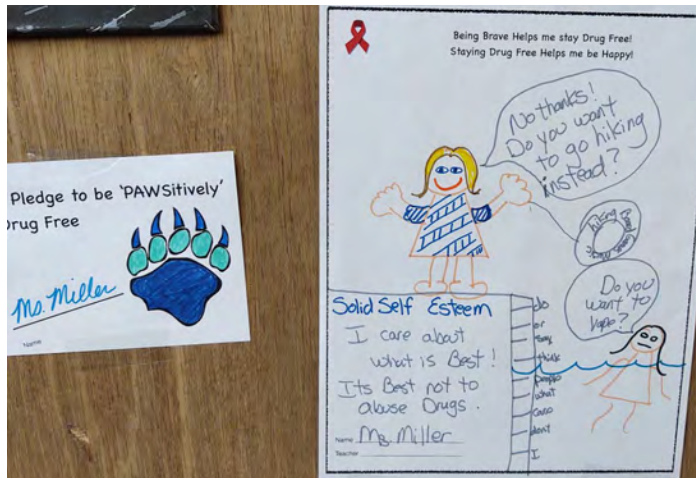 Pledge to be 'PAWSitively'
Drug Free
Ms. Miller
Name
Being Brave Helps me stay Drug Free!
Staying Drug Free Helps me be Happy!
No thanks!
Do you want
to go hiking
instead?
hiking
Do you
want to
vape?
Solid Self Esteem
I care about
what is Best!
Its Best not to
abuse Drugs.
Name Ms. Miller
Teacher
do
or
they
think
people
what
care
dont
I